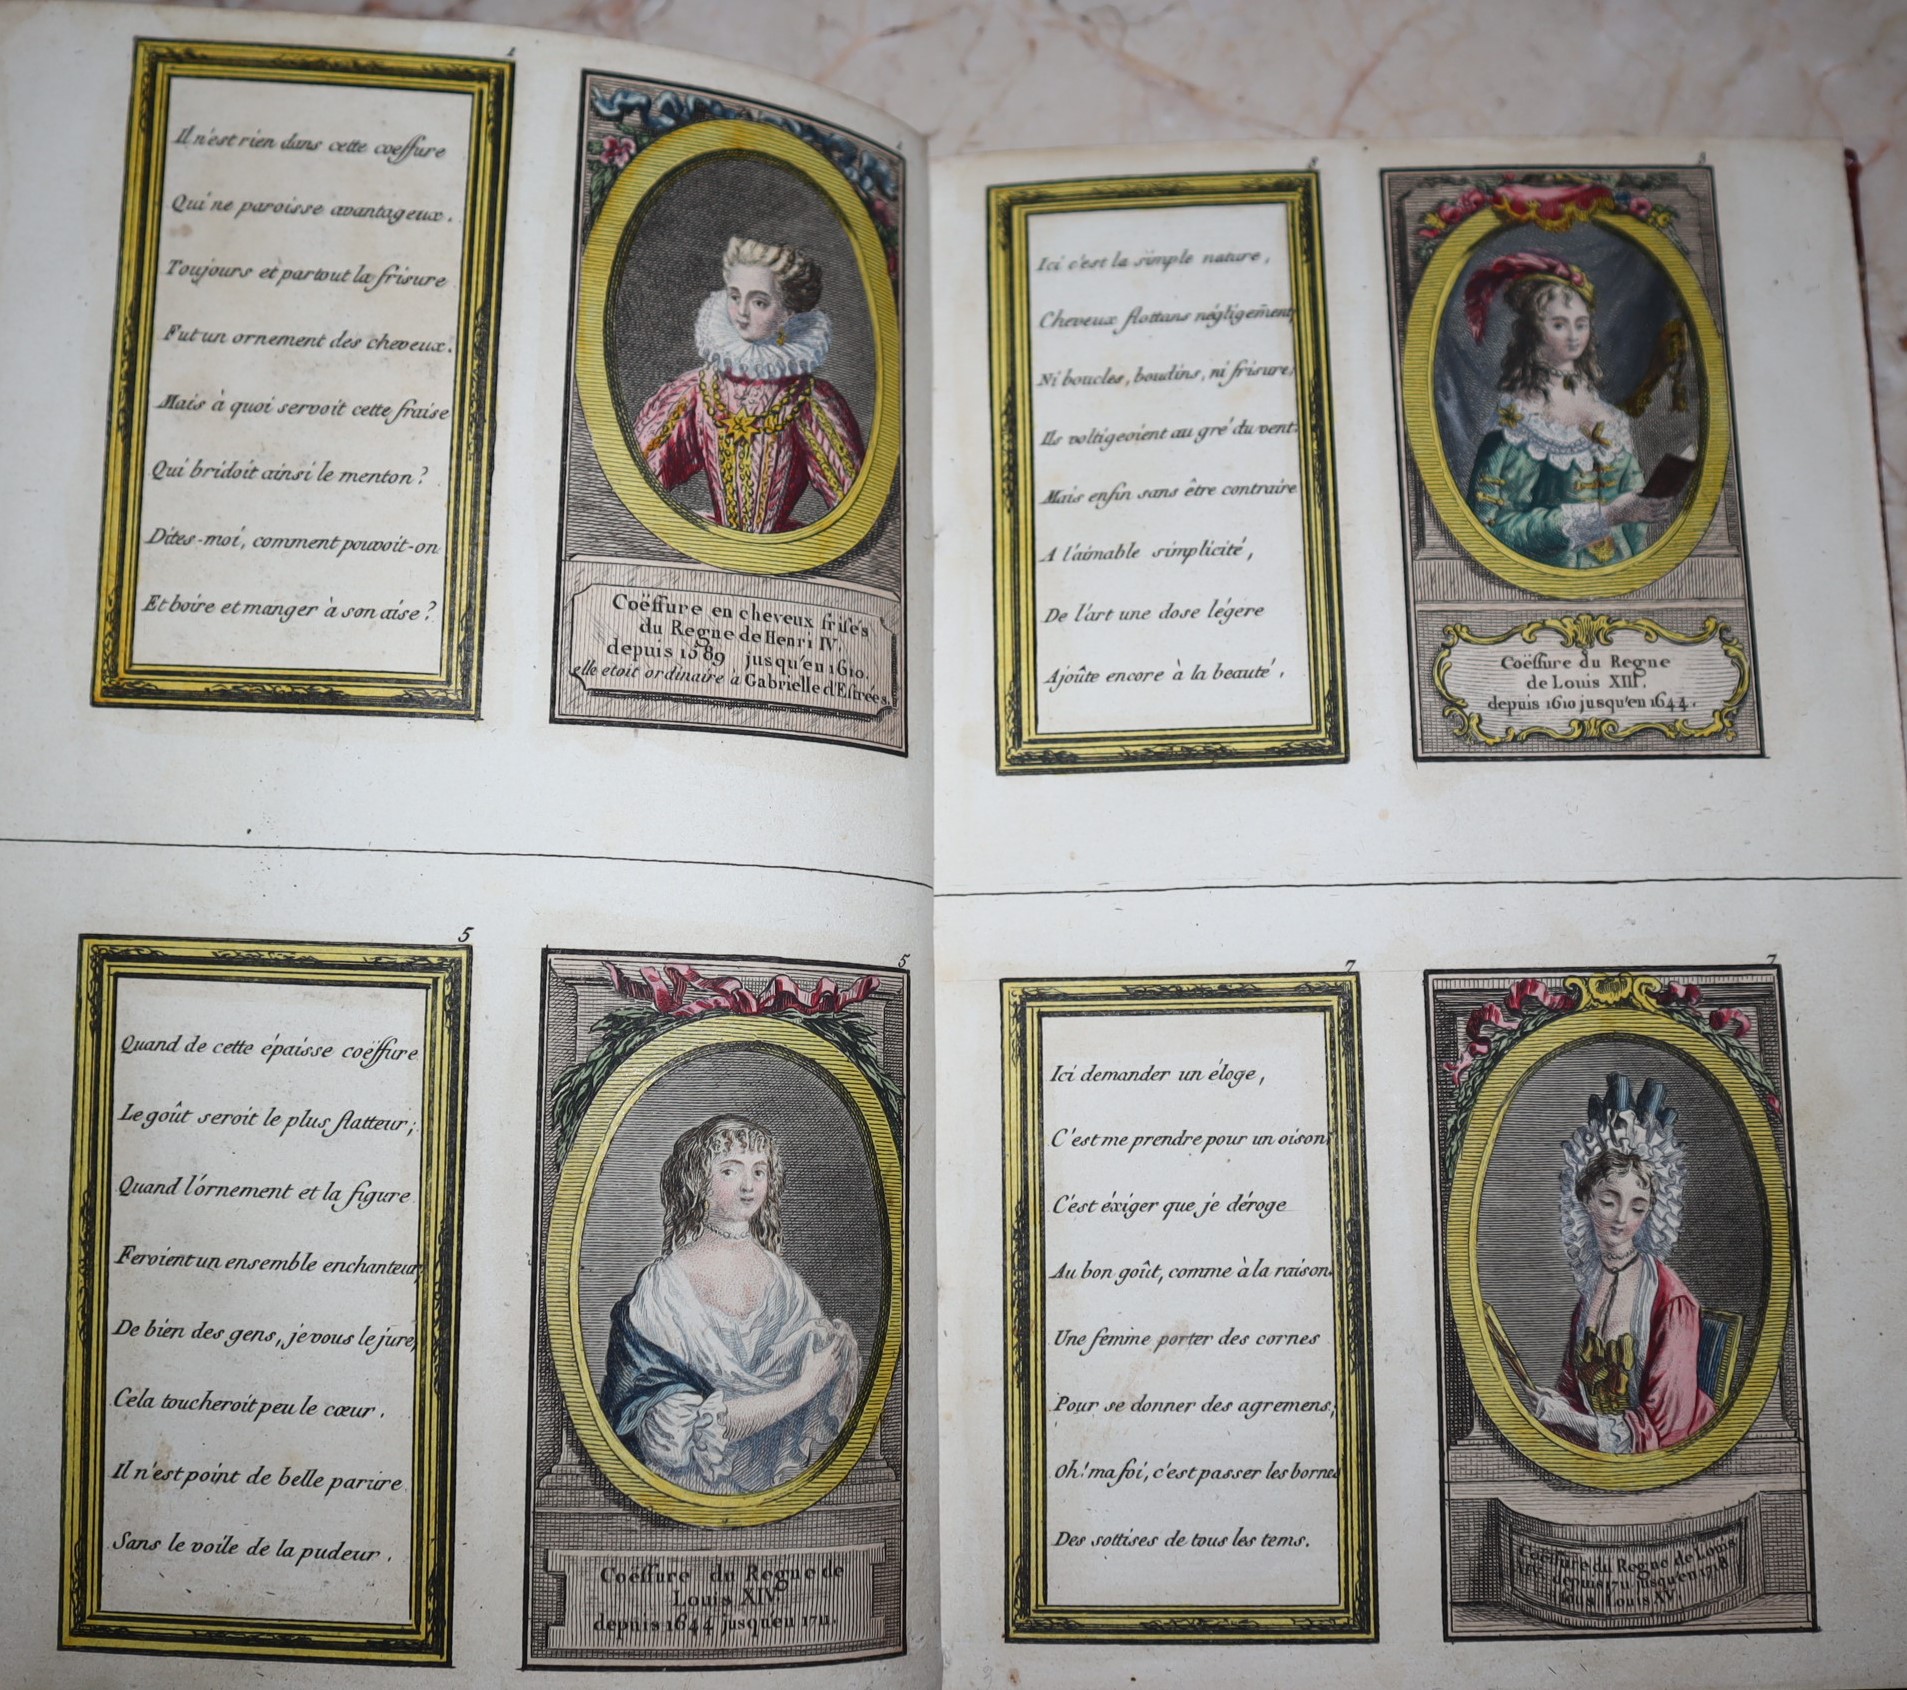 1
Il n'est rien dans cette coeffure
Qui ne paroisse avantageux.
Toujours et partout la frisure
Fut un ornement des cheveux.
Mais à quoi servoit cette fraise
Qui bridoit ainsi le menton?
Dites-moi, comment pouvoit-on
Et boire et manger à son aise?
1
Coëffure en cheveux frisés
du Regne de Henri IV.
depuis 1589 jusqu'en 1610.
elle etoit ordinaire à Gabrielle d'Estrées.
3
Ici c'est la simple nature,
Cheveux flottans négligem̄ent,
Ni boucles, boudins, ni frisure;
Ils voltigeoient au gré du vent:
Mais enfin sans être contraire
A l'aimable simplicité,
De l'art une dose légere
Ajoûte encore à la beauté.
3
Coëffure du Regne
de Louis XIII.
depuis 1610 jusqu'en 1644.
5
Quand de cette épaisse coëffure
Le goût seroit le plus flatteur;
Quand l'ornement et la figure
Feroient un ensemble enchanteur,
De bien des gens, je vous le jure,
Cela toucheroit peu le cœur.
Il n'est point de belle parure
Sans le voile de la pudeur.
5
Coëffure du Regne de
Louis XIV.
depuis 1644 jusqu'en 1711.
7
Ici demander un éloge,
C'est me prendre pour un oison;
C'est éxiger que je déroge
Au bon goût, comme à la raison.
Une fem̄e porter des cornes
Pour se donner des agremens;
Oh! ma foi, c'est passer les bornes
Des sottises de tous les tems.
7
Coëffure du Regne de Louis
XIV. depuis 1711 jusqu'en 1718
sous Louis XV.